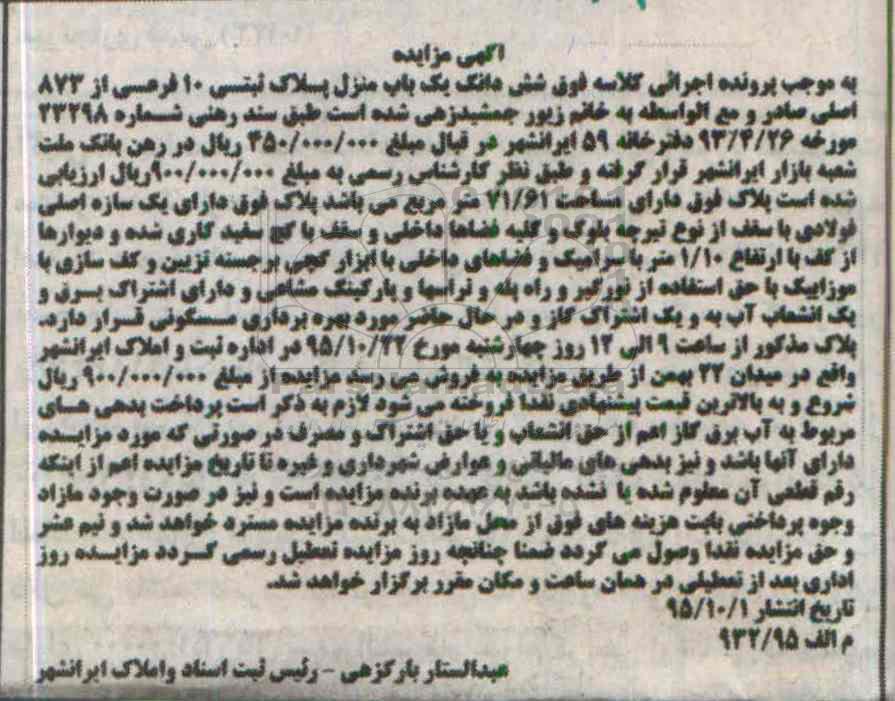 آگهی مزایده
به موجب پرونده اجرائی کلاسه فوق شش دانگ یک باب منزل پسلاک ثبتسی ۱۰ فرعسی از ۸۷۳
اصلی صادر و مع الواسطه به خانم زیور جمشیدزهی شده است طبق سند رهنی شماره ۲۳۲۹۸
مورخه ۹۳/۴/۲۶ دفترخانه ۵۹ ایرانشهر در قبال مبلغ ۴۵۰/۰۰۰/۰۰۰ ریال در رهن بانک ملت
شعبه بازار ایرانشهر قرار گرفته و طبق نظر کارشناس رسمی به مبلغ ۹۰۰/۰۰۰/۰۰۰ریال ارزیابی
شده است پلاک فوق دارای مساحت ۷۱/۶۱ متر مربع می باشد پلاک فوق دارای یک سازه اصلی
فولادی با سقف از نوع تیرچه بلوک و کلیه فضاها داخلی و سقف با گچ سفید کاری شده و دیوارها
از کف با ارتفاع ۱/۱۰ متر با سرامیک و فضاهای داخلی با ابزار گچی برجسته تزیین و کف سازی با
موزاییک با حق استفاده از نورگیر و راه پله و تراسها و پارکینگ مشاعی و دارای اشتراک بسرق و
یک انشعاب آب به و یک اشتراک گاز و در حال حاضر مورد بهره برداری مسسکونی قسرار دارد.
پلاک مذکور از ساعت ۹ الی ۱۲ روز چهارشنبه مورخ ۹۵/۱۰/۲۲ در اداره ثبت و املاک ایرانشهر
واقع در میدان ۲۲ بهمن از طریق مزایده به فروش می رسد مزایده از مبلغ ۹۰۰/۰۰۰/۰۰۰ ریال
شروع و به بالاترین قیمت پیشنهادی نقدا فروخته می شود لازم به ذکر است پرداخت بدهی هسای
مربوط به آب برق گاز اعم از حق انشعاب و یا حق اشتراک و مصرف در صورتی که مورد مزایسده
دارای آنها باشد و نیز بدهی های مالیاتی و عوارض شهرداری و غیره تا تاریخ مزایده اعم از اینکه
رقم قطعی آن معلوم شده یا نشده باشد به عهده برنده مزایده است و نیز در صورت وجود مازاد
وجوه پرداختی بابت هزینه های فوق از محل مازاد به برنده مزایده مسترد خواهد شد و نیم عشر
و حق مزایده نقدا وصول می گردد ضمنا چنانچه روز مزایده تعطیل رسمی گسردد مزایسده روز
اداری بعد از تعطیلی در همان ساعت و مکان مقرر برگزار خواهد شد.
تاریخ انتشار ۹۵/۱۰/۱
م الف ۹۳۲/۹۵
عبدالستار بارکزهی - رئیس ثبت اسناد واملاک ایرانشهر